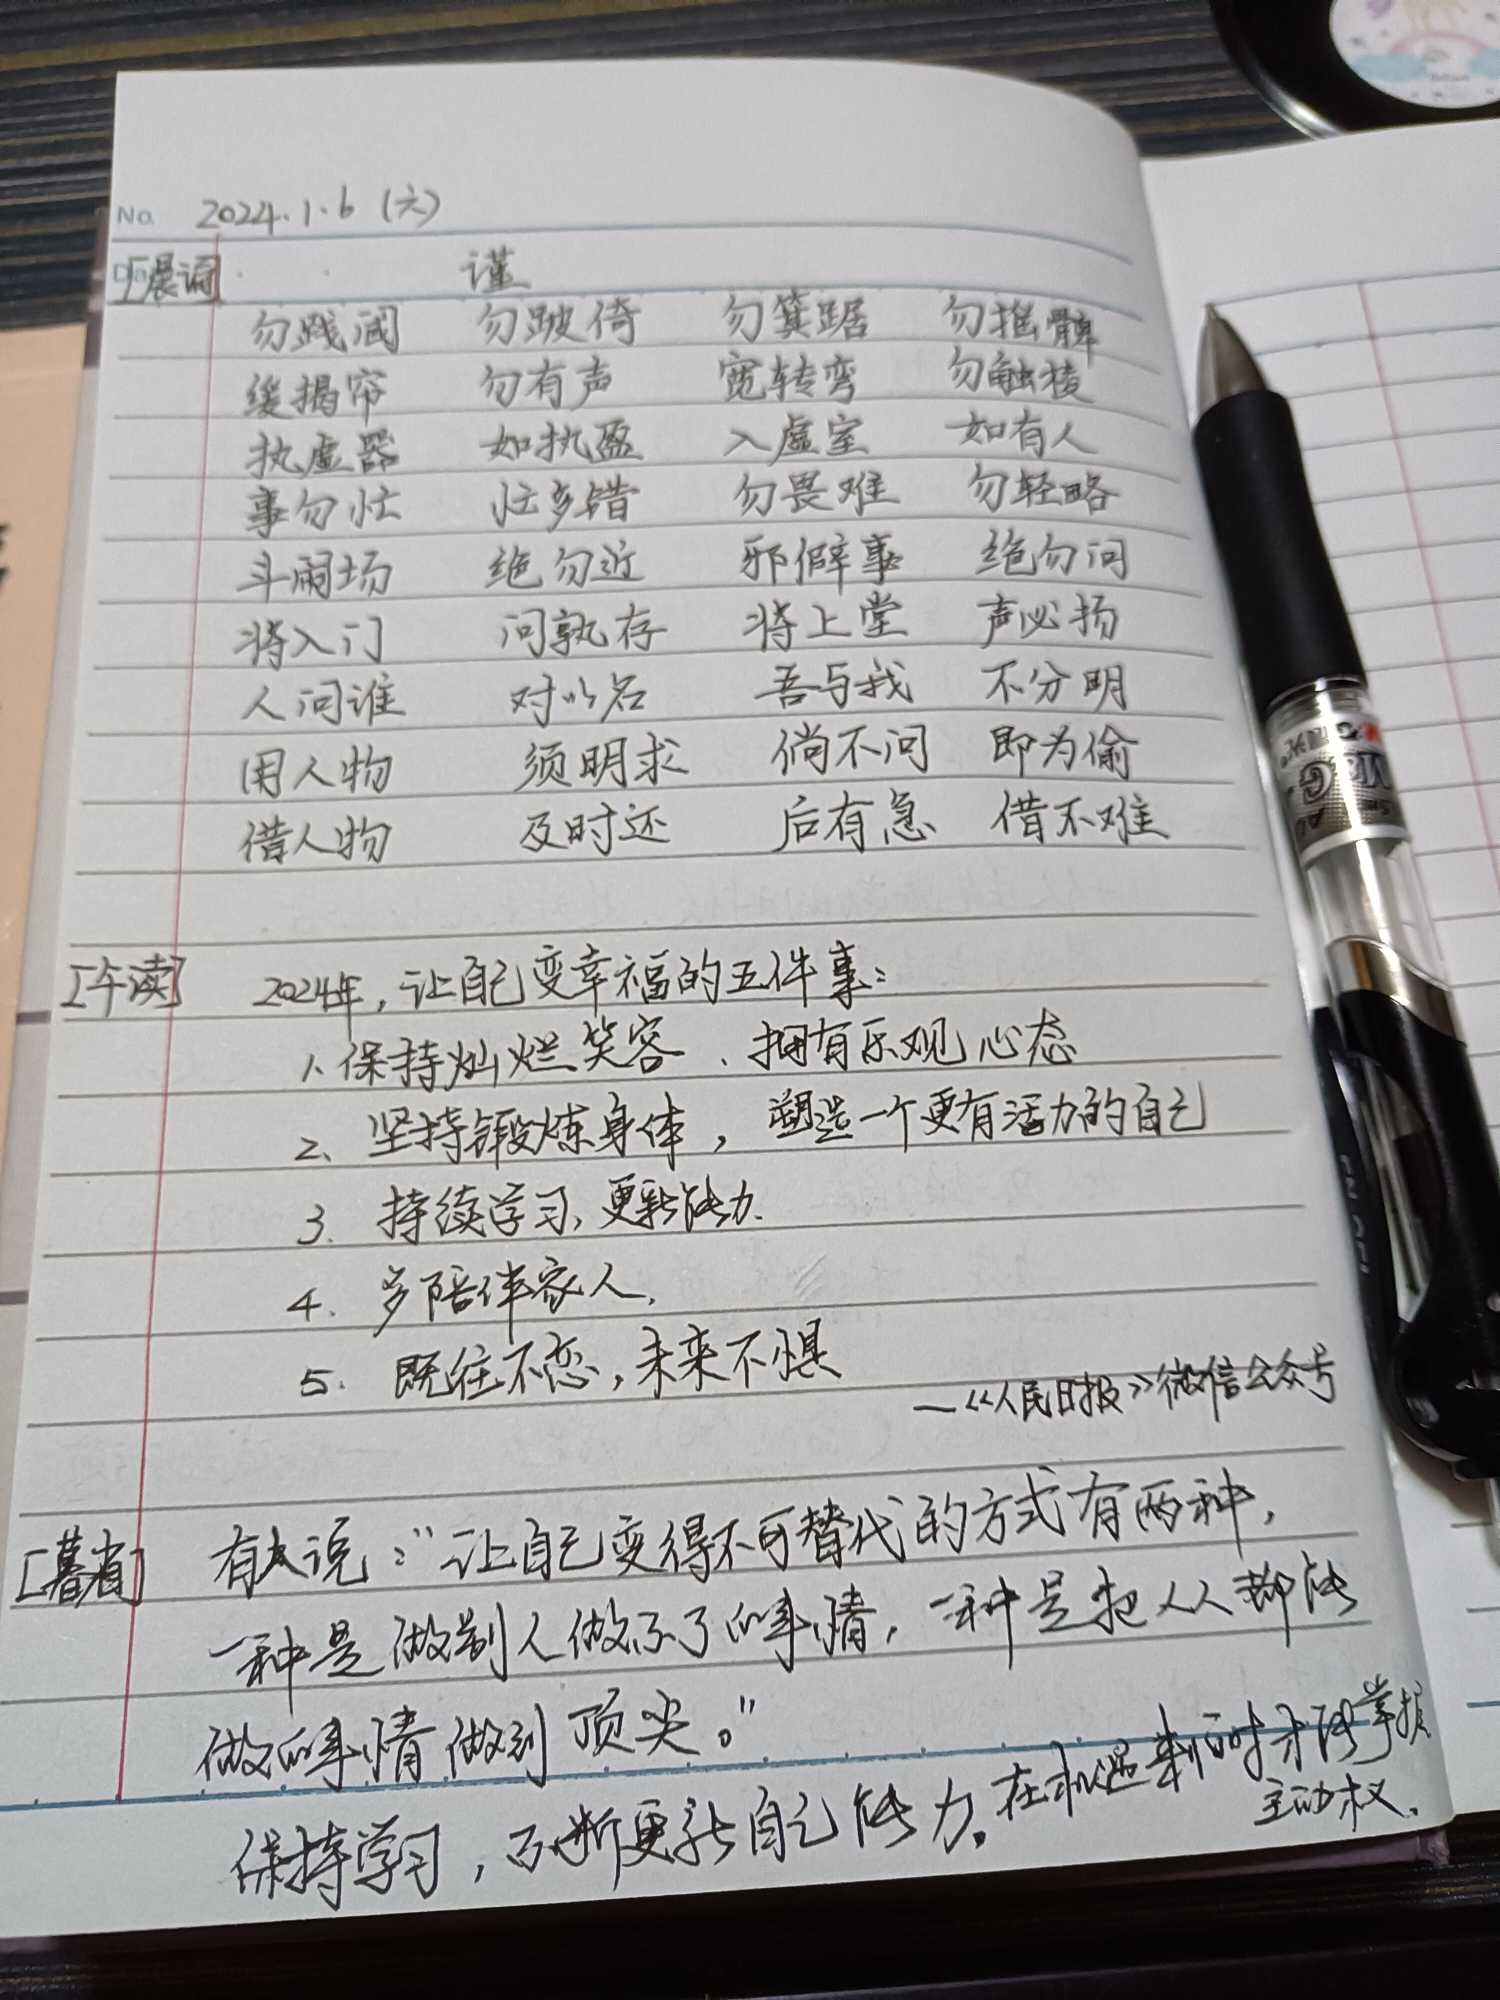 No. 2024.1.6 (六)
[晨诵] 谨
勿践阈 勿跛倚 勿箕踞 勿摇髀
缓揭帘 勿有声 宽转弯 勿触棱
执虚器 如执盈 入虚室 如有人
事勿忙 忙多错 勿畏难 勿轻略
斗闹场 绝勿近 邪僻事 绝勿问
将入门 问孰存 将上堂 声必扬
人问谁 对以名 吾与我 不分明
用人物 须明求 倘不问 即为偷
借人物 及时还 后有急 借不难
[午读] 2024年,让自己变幸福的五件事:
1.保持灿烂笑容、拥有乐观心态
2、坚持锻炼身体,塑造一个更有活力的自己
3.持续学习,更新能力.
4.多陪伴家人.
5.既往不恋,未来不惧
—《人民日报》微信公众号
[暮省] 有人说:"让自己变得不可替代的方式有两种,
一种是做别人做不了的事情,一种是把人人都能
做的事情做到顶尖。"
保持学习,不断更新自己能力。在机遇来临时才能掌握
主动权.